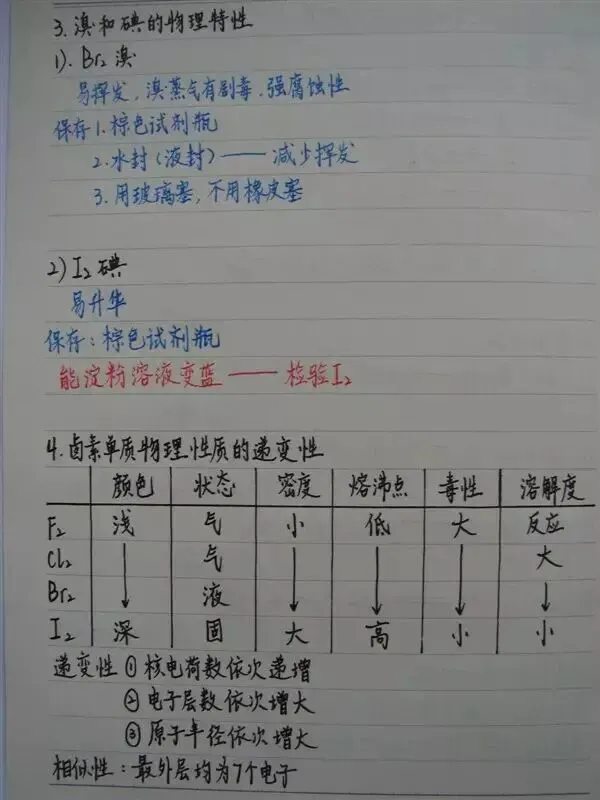 3. 溴和碘的物理特性
1). Br₂ 溴
易挥发, 溴蒸气有剧毒. 强腐蚀性
保存1. 棕色试剂瓶
2. 水封(液封)—— 减少挥发
3. 用玻璃塞, 不用橡皮塞
2) I₂ 碘
易升华
保存: 棕色试剂瓶
能淀粉溶液变蓝 —— 检验I₂
4. 卤素单质物理性质的递变性
颜色 状态 密度 熔沸点 毒性 溶解度
F₂ 浅 气 小 低 大 反应
Cl₂ ↓ 气 ↓ ↓ ↓ 大
Br₂ ↓ 液 ↓ ↓ ↓ ↓
I₂ 深 固 大 高 小 小
递变性 ① 核电荷数依次递增
② 电子层数依次增大
③ 原子半径依次增大
相似性: 最外层均为7个电子